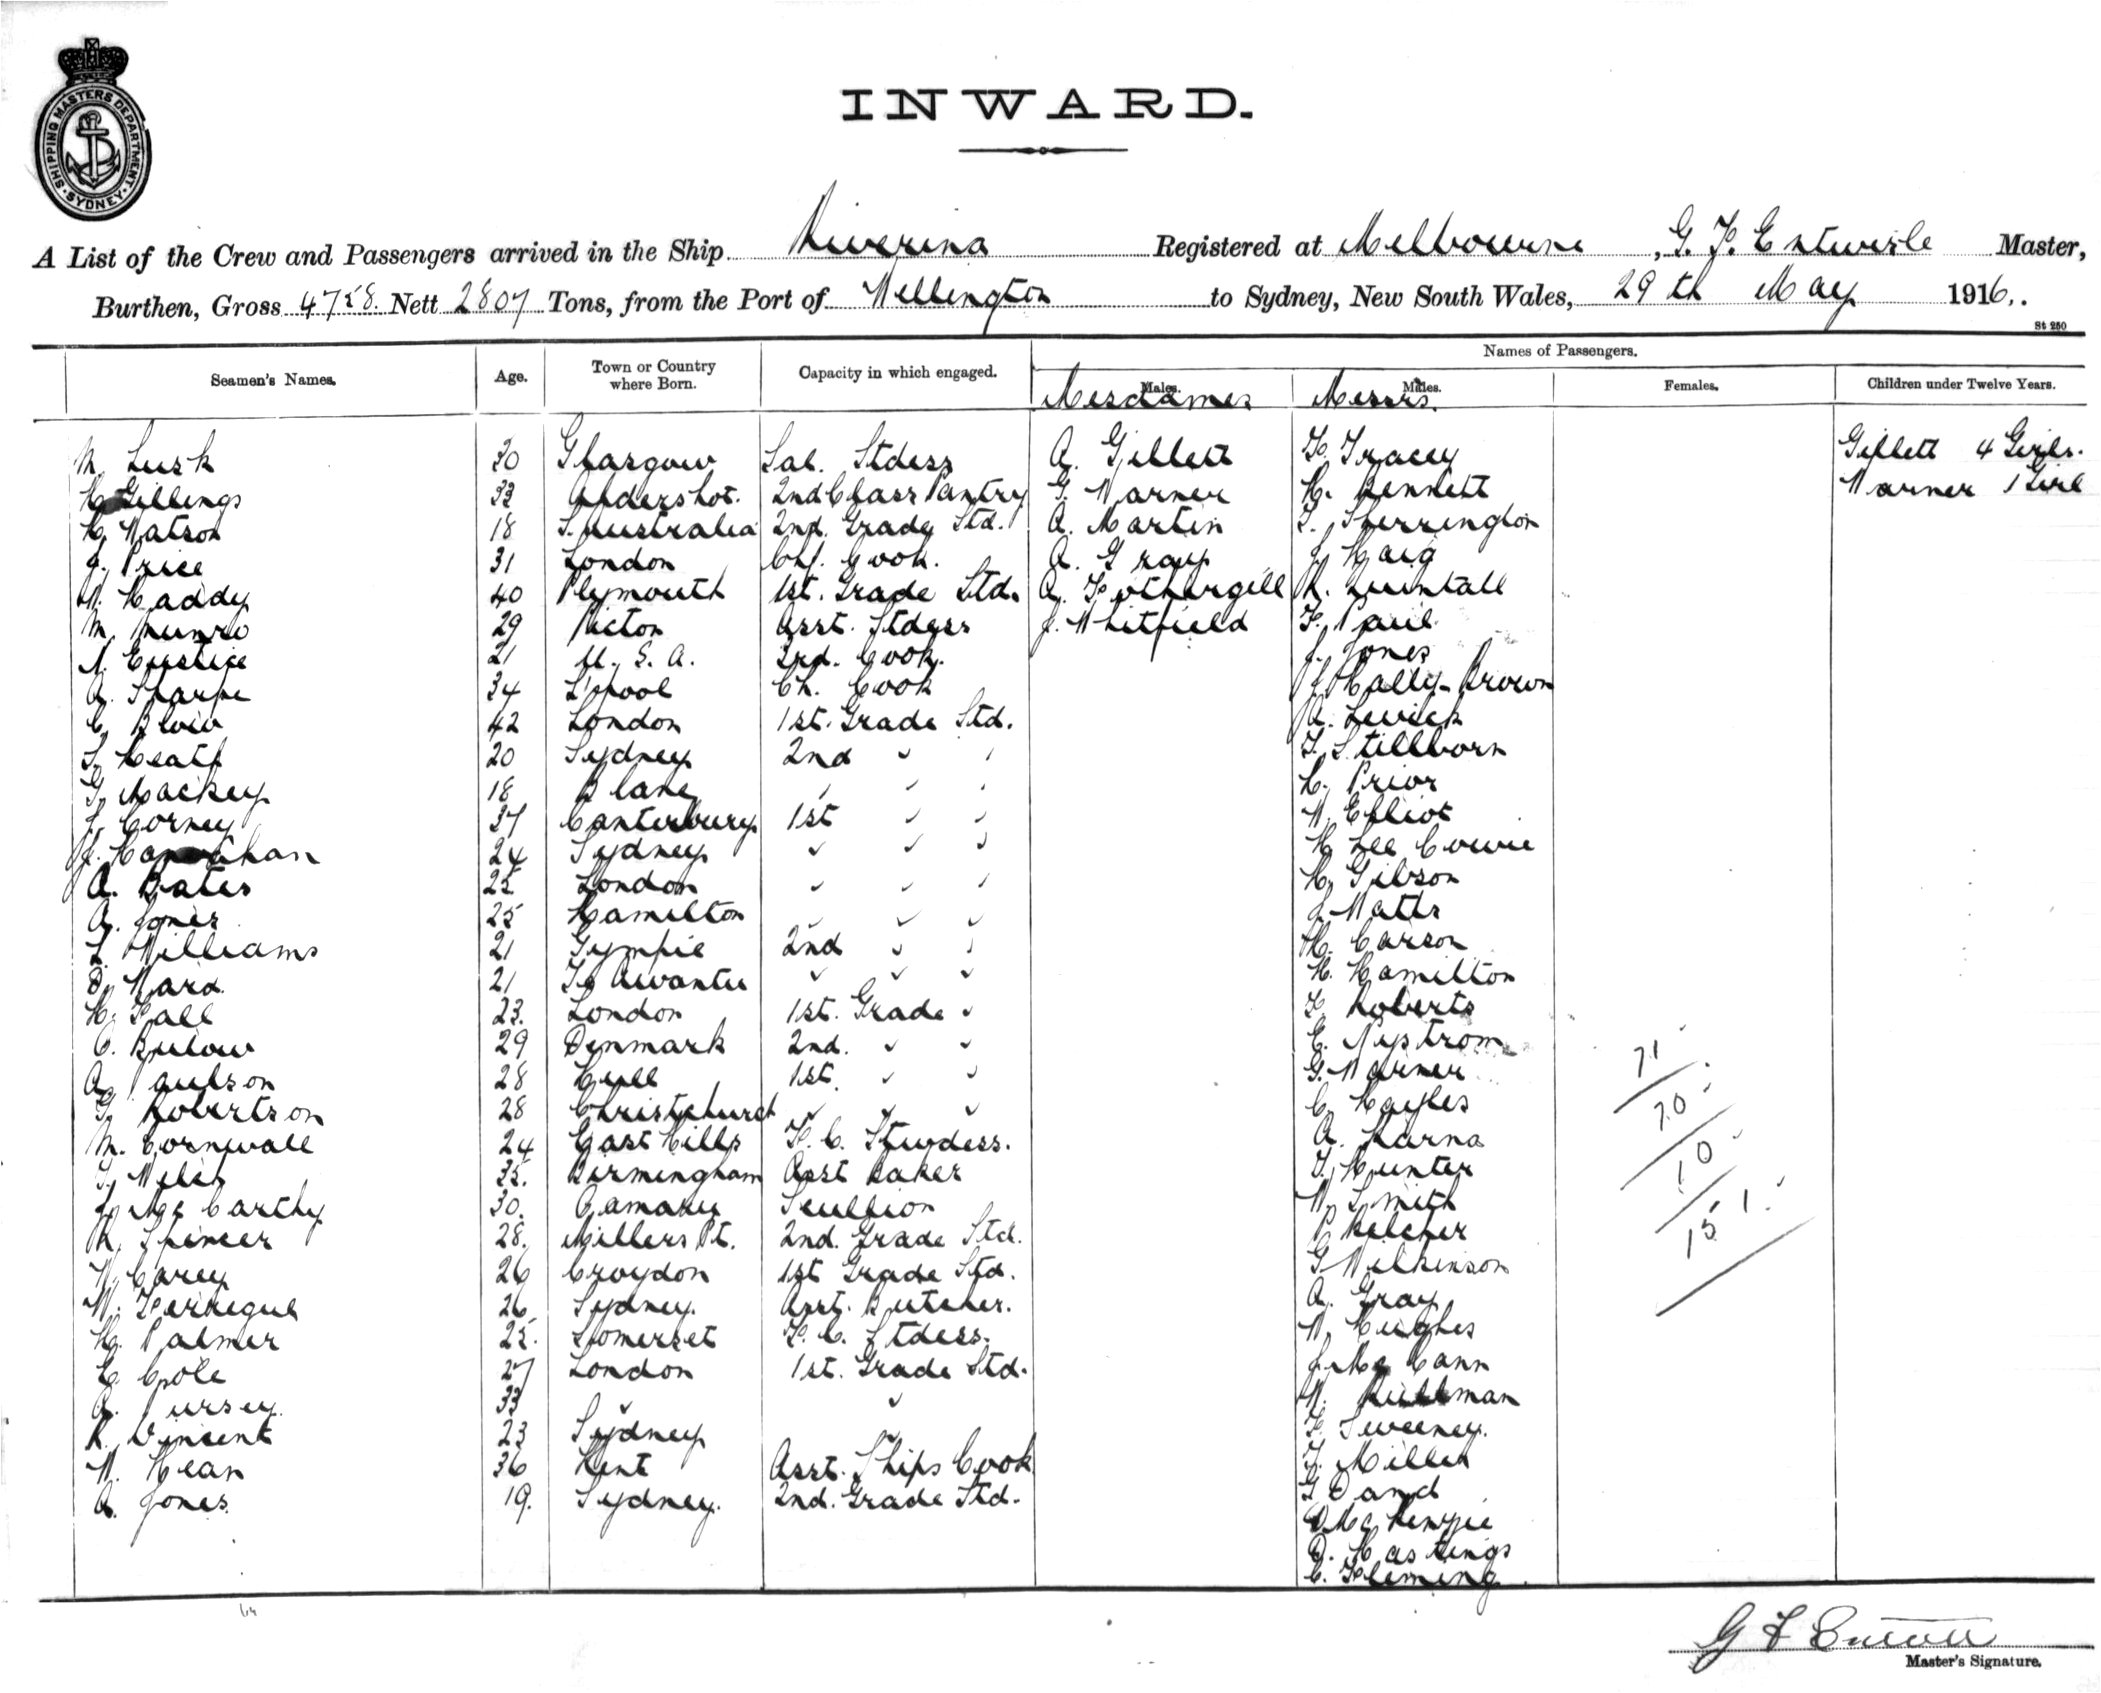 SHIPPING MASTERS DEPARTMENT. SYDNEY
INWARD.
A List of the Crew and Passengers arrived in the Ship Riverina Registered at Melbourne, G. F. Entwisle Master,
Burthen, Gross 4758. Nett 2807 Tons, from the Port of Wellington to Sydney, New South Wales, 29th May 1916.
St 250
Seamen's Names. Age. Town or Country where Born. Capacity in which engaged. Names of Passengers.
Males. Males. Females. Children under Twelve Years.
Mesdames Messrs.
M. Lusk 30 Glasgow Sal. Stdess A. Gillett F. Tracey Gillett 4 Girls.
H. Gillings 33 Aldershot. 2nd Class Pantry G. Warner H. Bennett Warner 1 Girl
C. Watson 18 S. Australia 2nd. Grade Std. A. Martin Sherrington
J. Price 31 London Chf. Cook. A. Gray J. Haig
W. Haddy 40 Plymouth 1st. Grade Std. A. Fothergill R. Quintall
M. Munro 29 Picton Asst. Stdess J. Whitfield F. Paul
Eustice 21 U. S. A. 3rd. Cook. J. Jones
A. Sharpe 34 L'pool Ch. Cook J. Hally-Brown
C. 42 London 1st. Grade Std. A. Levick
S. Heath 20 Sydney 2nd " " T. Stillborn
G. Mackey 18 Blaney " " " C. Prior
J. Corney 37 Canterbury 1st " " W. Elliot
J. 24 Sydney " " " H. Lee Cowie
A. Bates 25 London " " " H. Gibson
A. Jones 25 Hamilton " " " J. Watts
L. Williams 21 Gympie 2nd " " H. Carson
D. Ward 21 Te Awamutu " " " H. Hamilton
H. Hall 23. London 1st. Grade " F. Roberts
C. Bulow 29 Denmark 2nd. " " E. Nystrom
A. Paulson 28 Hull 1st. " " G. Warner
G. Robertson 28 Christchurch " " " C. Hayles
M. Cornwall 24 East Hills F. C. Stwdess. A. Karna
35. Birmingham Asst Baker T. Hunter
J. McCarthy 30. Oamaru Scullion W. Smith
R. Spencer 28. Millers Pt. 2nd. Grade Std. P. Kelcher
W. Carey 26 Croydon 1st Grade Std. G. Wilkinson
W. 26 Sydney. Asst. Butcher. A. Gray
H. Palmer 25. Somerset F. C. Stdess. W. Hughes
E. Cole 27 London 1st. Grade Std. J. McCann
A. Pursey. 33 " " W. Kullman
R. Vincent 23 Sydney " F. Sweeney.
W. Hean 36 Kent Asst. Ships Cook T. Miller
A. Jones. 19. Sydney. 2nd. Grade Std. G. Dand
D. McKenzie
D. Hastings
C. Fleming
71
70
10
151
Master's Signature.